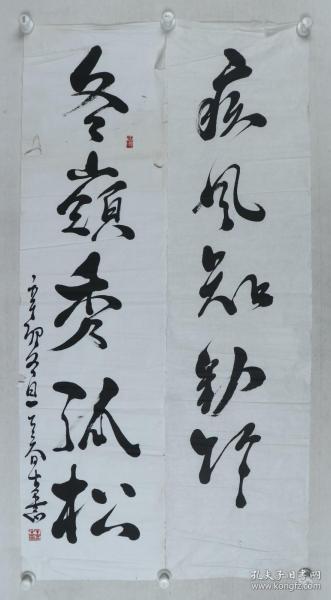 疾风知劲竹
冬嶺秀孤松
辛卯冬日
孔夫子旧书网
kongfz.com